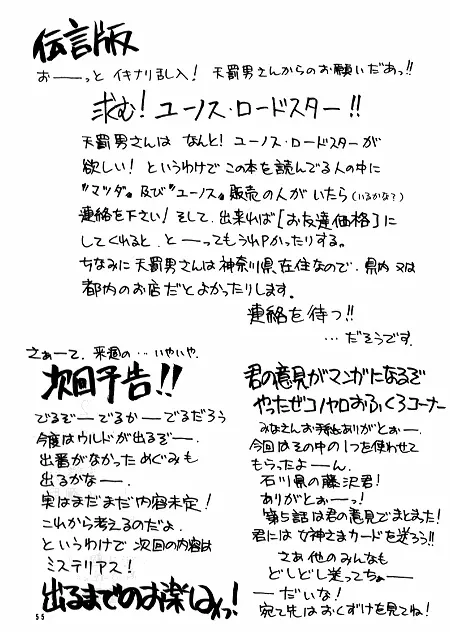 伝言版
おーーっと イキナリ乱入! 天罰男さんからのお願いだあっ!!
求む! ユーノス・ロードスター!!
天罰男さんは なんと! ユーノス・ロードスターが
欲しい! というわけで この本を読んでる人の中に
〝マツダ〟及び〝ユーノス〟販売の人がいたら(いるかな?)
連絡を下さい! そして、出来れば[お友達価格]に
してくれると、と──ってもうれPかったりする。
ちなみに 天罰男さんは神奈川県在住なので、県内 又は
都内のお店だとよかったりします。
連絡を待つ!!
…だそうです。
さぁーて、来週の…いやいや、
次回予告!!
でるぞー でるかー でるだろう
今度はウルドが出るぞー。
出番がなかっためぐみも
出るかなー。
実はまだまだ内容未定!
これから考えるのだよ。
というわけで 次回の内容は
ミステリアス!
出るまでのお楽しみっ!
55
君の意見がマンガになるぞ
やったぜコノヤロおふくろコーナー
みなさんお手紙ありがとぉー。
今回はその中の1つを使わせて
もらったよーん。
石川県の藤沢君!
ありがとぉーっ!
第5話は君の意見でまとまった!
君には女神さまカードを送ろう!!
さあ 他のみんなも
どしどし送ってちょ──
──だいな!
宛て先はおくずけを見てね!